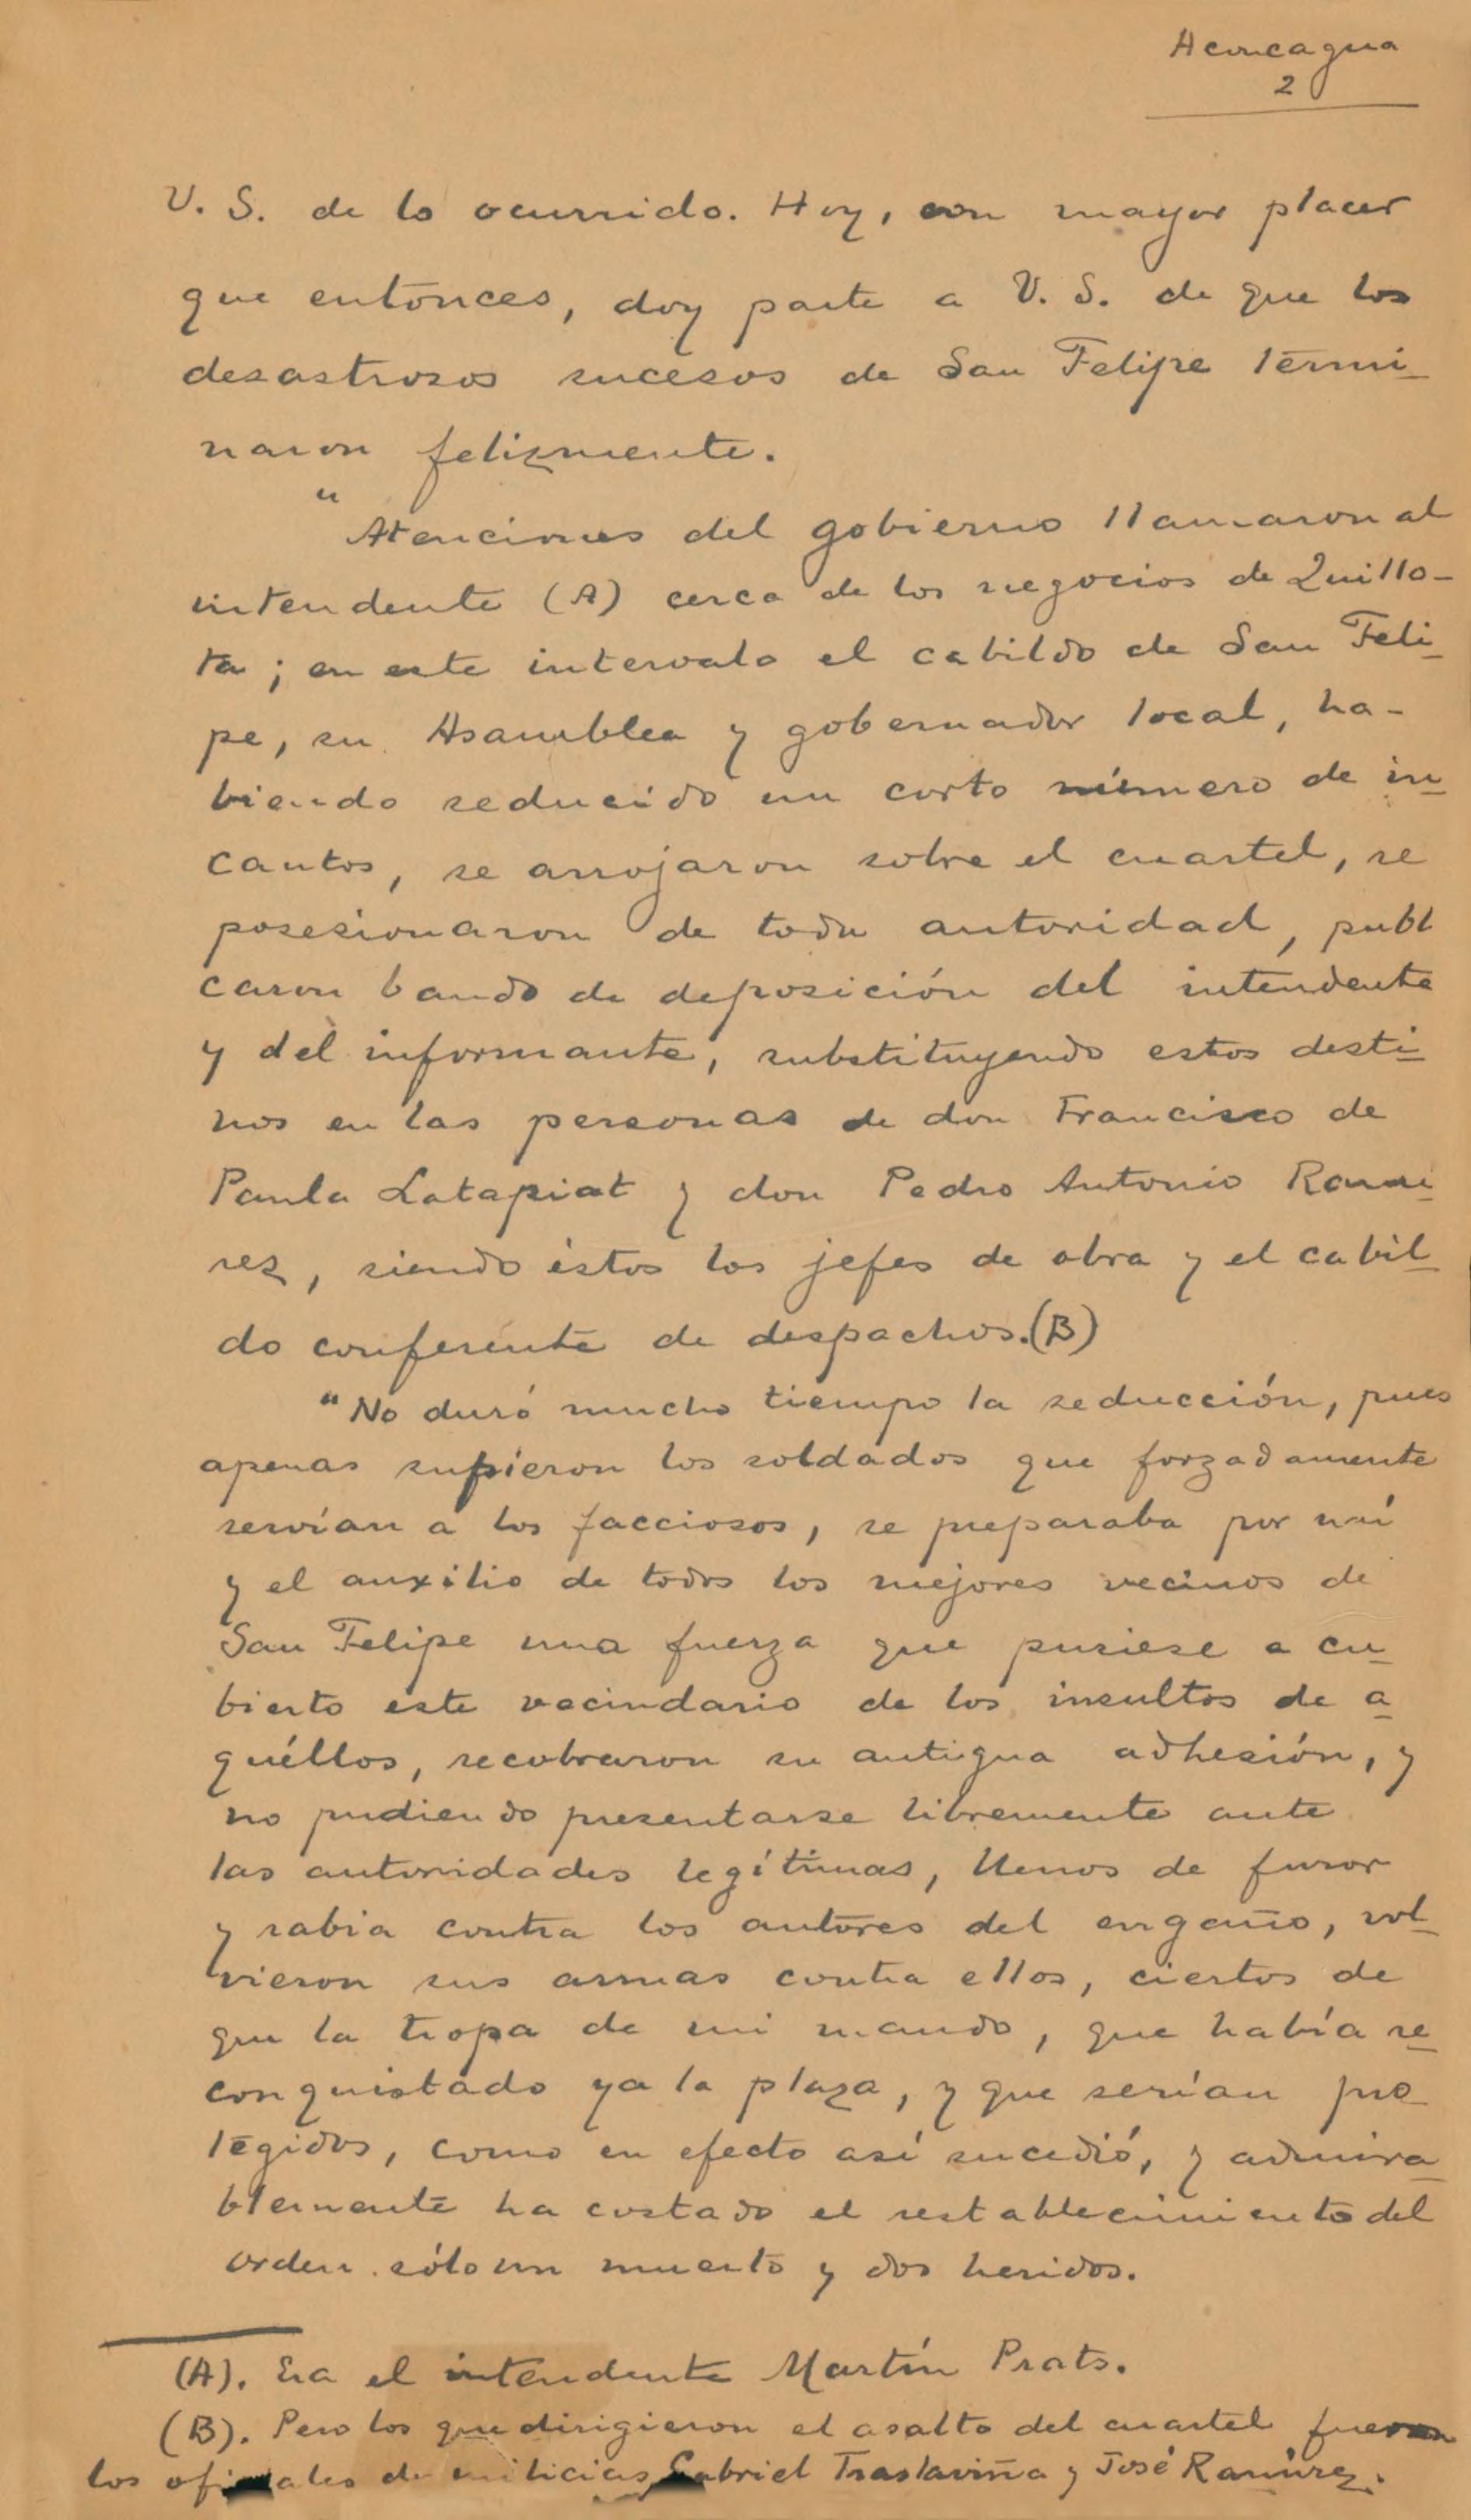 Aconcagua
2
V. S. de lo ocurrido. Hoy, con mayor placer
que entonces, doy parte a V. S. de que los
desastrosos sucesos de San Felipe termi-
naron felizmente.
"Atenciones del gobierno llamaron al
intendente (A) cerca de los negocios de Quillo-
ta; en este intervalo el cabildo de San Feli-
pe, su Asamblea y gobernador local, ha-
biendo seducido un corto número de in-
cautos, se arrojaron sobre el cuartel, se
posesionaron de toda autoridad, publi
caron bando de deposición del intendente
y del informante, substituyendo estos desti-
nos en las personas de don Francisco de
Paula Latapiat y don Pedro Antonio Rami-
rez, siendo éstos los jefes de obra y el cabil-
do conferente de despachos.(B)
"No duró mucho tiempo la seducción, pues
apenas supieron los soldados que forzadamente
servían a los facciosos, se preparaba por mí
y el auxilio de todos los mejores vecinos de
San Felipe una fuerza que pusiese a cu-
bierto este vecindario de los insultos de a-
quéllos, recobraron su antigua adhesión, y
no pudiendo presentarse libremente ante
las autoridades legítimas, llenos de furor
y rabia contra los autores del engaño, vol-
vieron sus armas contra ellos, ciertos de
que la tropa de mi mando, que había re-
conquistado ya la plaza, y que serían pro-
tegidos, como en efecto así sucedió, y admira-
blemente ha costado el restablecimiento del
orden sólo un muerto y dos heridos.
(A). Era el intendente Martín Prats.
(B). Pero los que dirigieron el asalto del cuartel fueron
los oficiales de milicias Gabriel Traslaviña y José Ramírez.